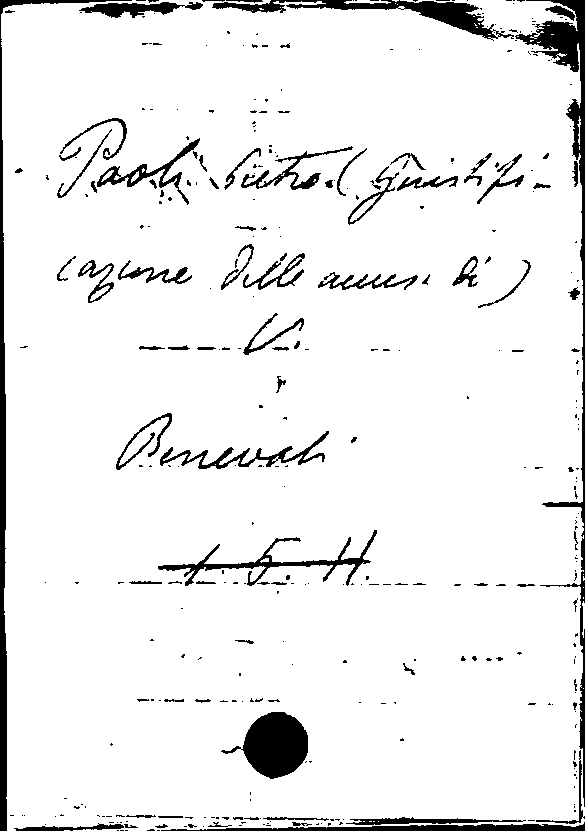 Paoli Pietro (Giustifi-
cazione delle accuse di)
V.
Benevoli
1. 5. H.